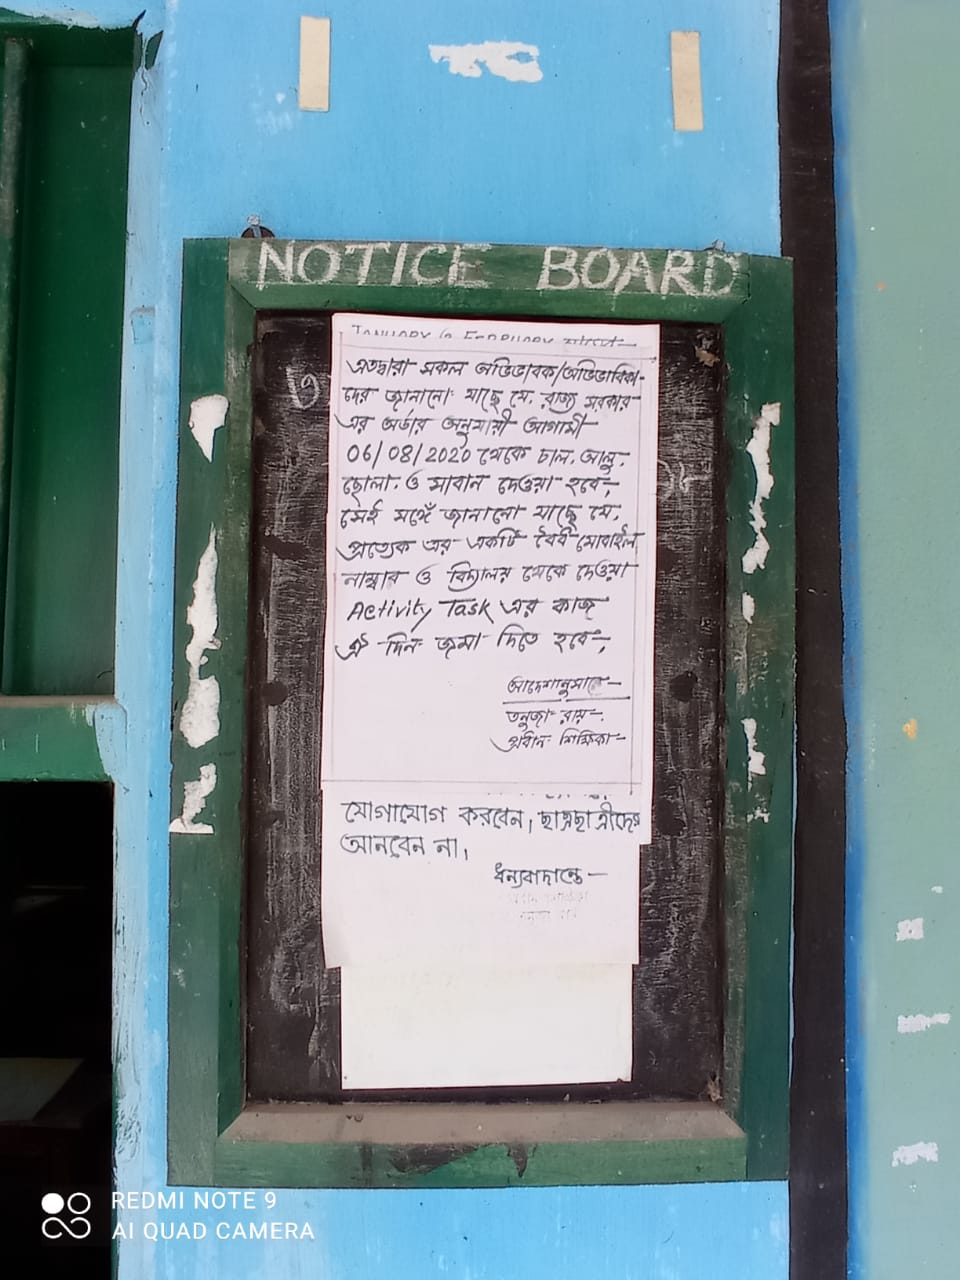 NOTICE BOARD
এতদ্বারা সকল অভিভাবক/অভিভাবিকা-
দের জানানো যাচ্ছে যে, রাজ্য সরকার
এর অর্ডার অনুযায়ী আগামী
06/08/2020 থেকে চাল, আলু,
ছোলা, ও সাবান দেওয়া হবে,
সেই সঙ্গে জানানো যাচ্ছে যে,
প্রত্যেক এর একটি বৈধ মোবাইল
নাম্বার ও বিদ্যালয় থেকে দেওয়া
Activity Task এর কাজ
ঐ দিন জমা দিতে হবে,
আদেশানুসারে—
তনুজা রায়—.
প্রধান শিক্ষিকা—
যোগাযোগ করবেন, ছাত্রছাত্রীদের
আনবেন না,
ধন্যবাদান্তে—
REDMI NOTE 9
AI QUAD CAMERA